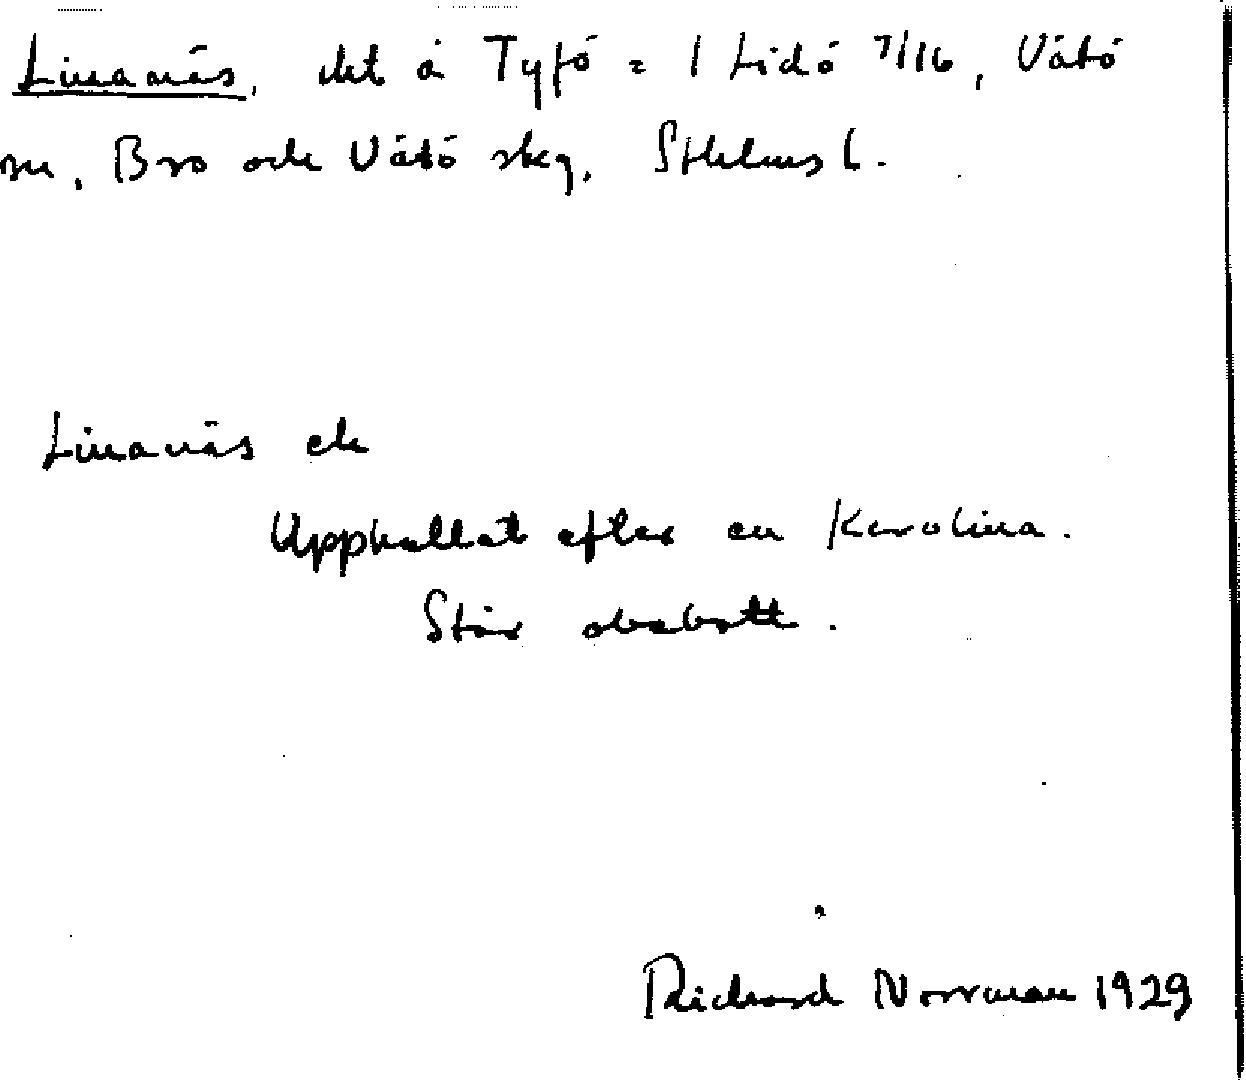 Linanäs, det å Tyfö = 1 Lidö 7/16, Vätö
sn, Bro och Vätö skg, Sthlms l.
Linanäs
Upphallat efter en Karolina.
Står obebott.
Richard Norrman 1929